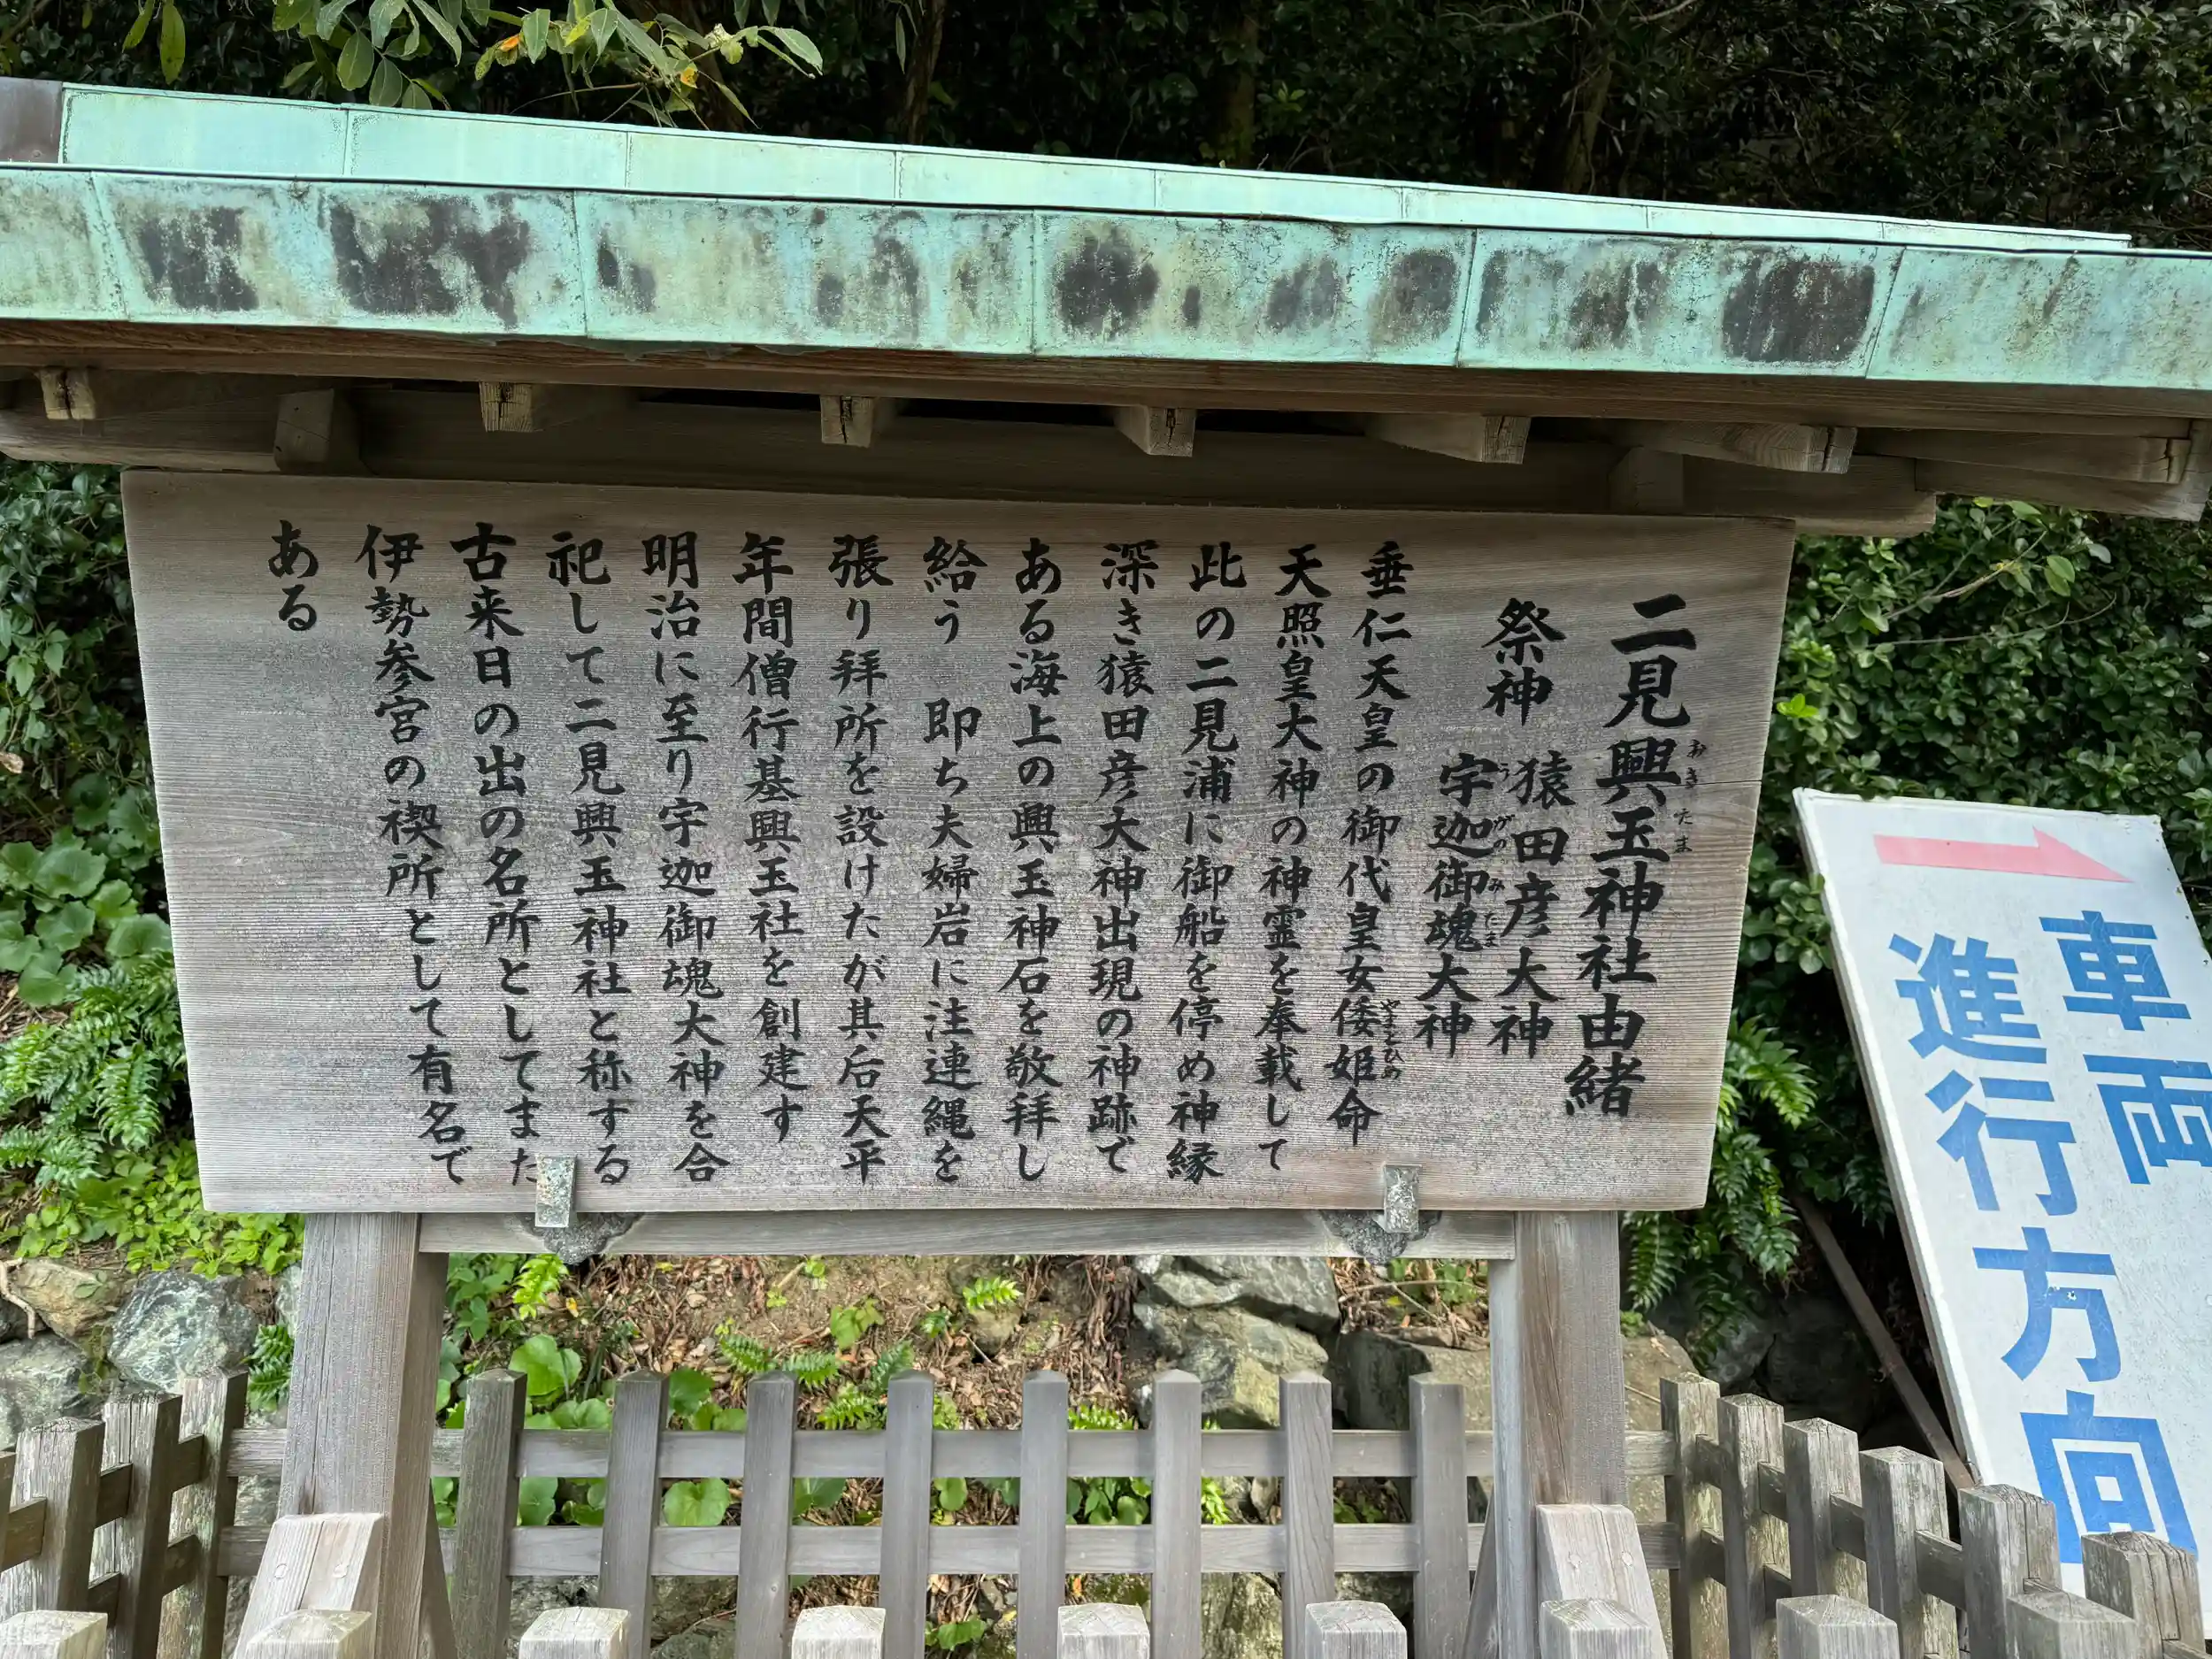 二見興玉神社由緒
おきたま
祭神　猿田彦大神
宇迦御魂大神
うがのみたま
垂仁天皇の御代皇女倭姫命
やまとひめ
天照皇大神の神霊を奉載して
此の二見浦に御船を停め神縁
深き猿田彦大神出現の神跡で
ある海上の興玉神石を敬拝し
給う　即ち夫婦岩に注連縄を
張り拝所を設けたが其后天平
年間僧行基興玉社を創建す
明治に至り宇迦御魂大神を合
祀して二見興玉神社と称する
古来日の出の名所としてまた
伊勢参宮の禊所として有名で
ある
車両
進行方向